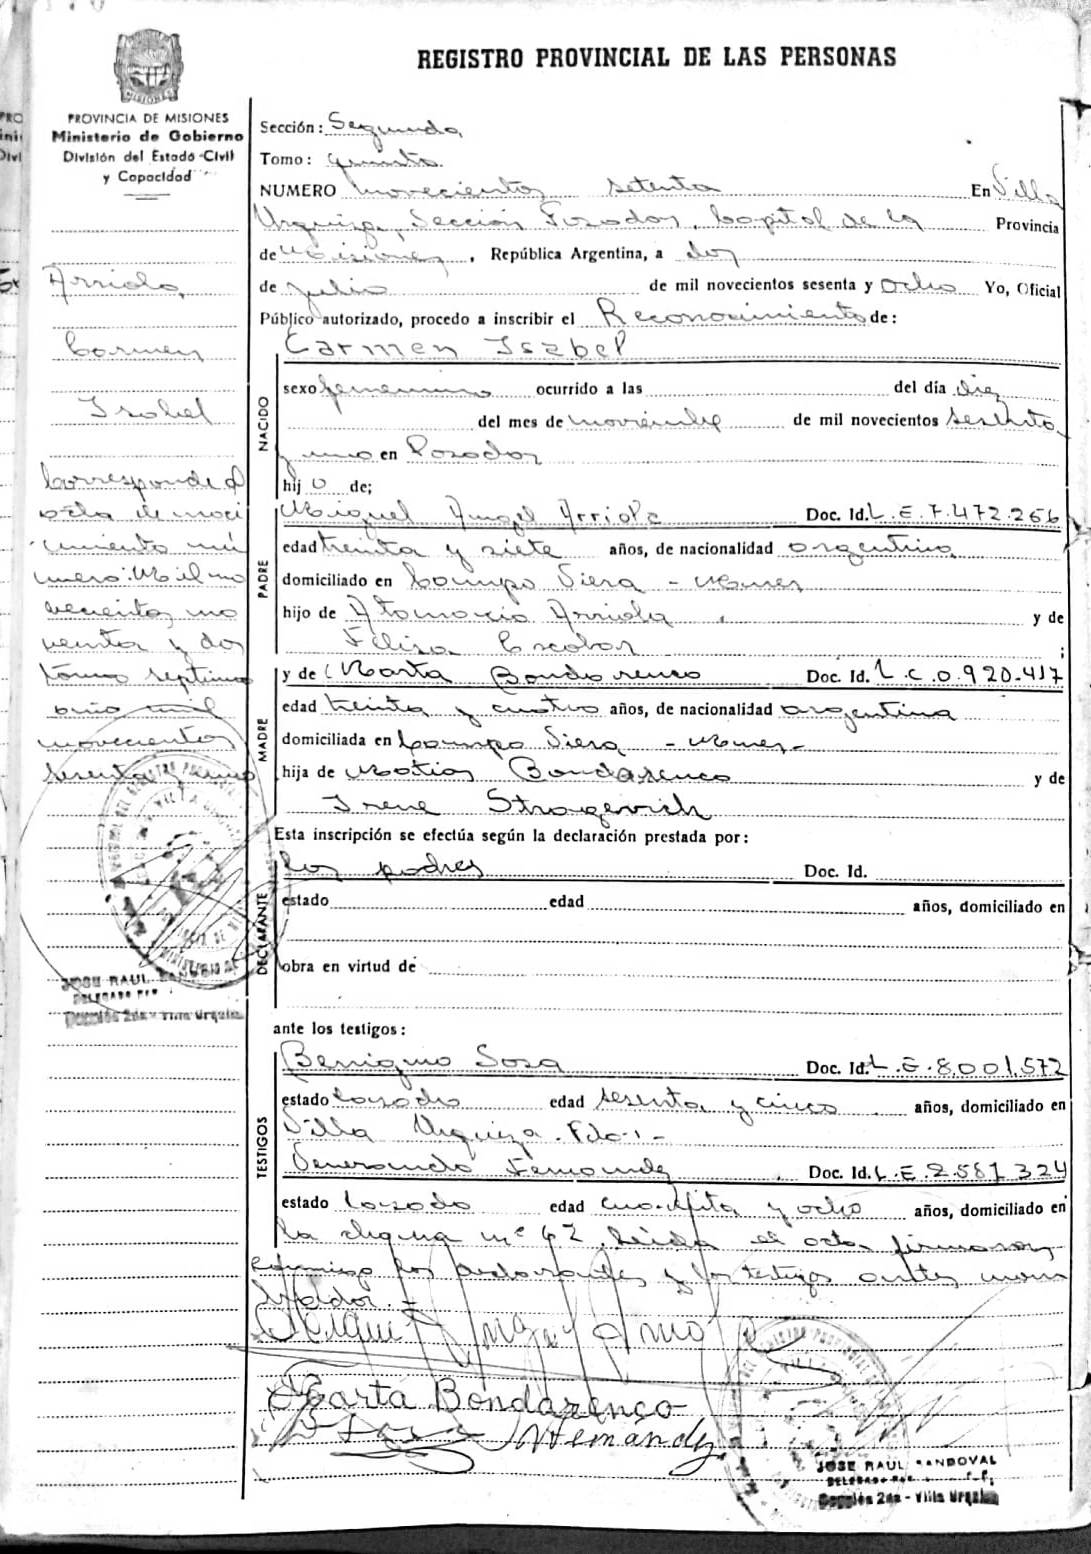 REGISTRO PROVINCIAL DE LAS PERSONAS
MISIONES
PROVINCIA DE MISIONES
Ministerio de Gobierno
División del Estado Civil
y Capacidad
Arriola,
Carmen
Isabel
Corresponde al
acta de naci
miento nú
mero: Mil no
vecientos no
venta y dos
tomo septimo
año mil
novecientos
sesenta y uno
JOSE RAUL
Sección 2da - Villa Urquiza
Sección: Segunda
Tomo: quinto
NUMERO novecientos setenta En Villa
Urquiza, Sección Posadas, Capital de la Provincia
de Misiones, República Argentina, a dos
de julio de mil novecientos sesenta y ocho Yo, Oficial
Público autorizado, procedo a inscribir el Reconocimiento de:
NACIDO
Carmen Isabel
sexo femenino ocurrido a las del día diez
del mes de noviembre de mil novecientos sesenta
y uno en Posadas
hij a de;
PADRE
Miguel Angel Arriola Doc. Id. L.E.7.472.266
edad treinta y siete años, de nacionalidad argentina
domiciliado en Campo Viera - Mnes
hijo de Atanacio Arriola y de
Felisa Escobar ;
MADRE
y de Marta Bondarenco Doc. Id. L.C.0.920.417
edad treinta y cuatro años, de nacionalidad argentina
domiciliada en Campo Viera - Mnes-
hija de Matias Bondarenco y de
Irene Stragevich
Esta inscripción se efectúa según la declaración prestada por:
DECLARANTE
los padres Doc. Id.
estado edad años, domiciliado en
obra en virtud de
ante los testigos:
TESTIGOS
Benigno Sosa Doc. Id. L.E.8.001.572
estado casado edad sesenta y cinco años, domiciliado en
Villa Urquiza.
Venerando Doc. Id. L.E.2.581.324
estado casado edad cuarenta y ocho años, domiciliado en
la chacra nº 62. Leida el acta firmaron
conmigo los declarantes y los testigos antes nom
brados. -
Miguel Angel Arriola
Marta Bondarenco
JOSE RAUL SANDOVAL
Sección 2da - Villa Urquiza